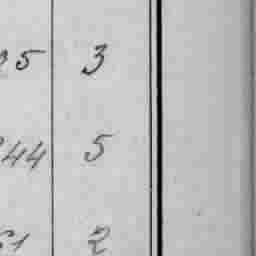 5 3
44 5
51 2